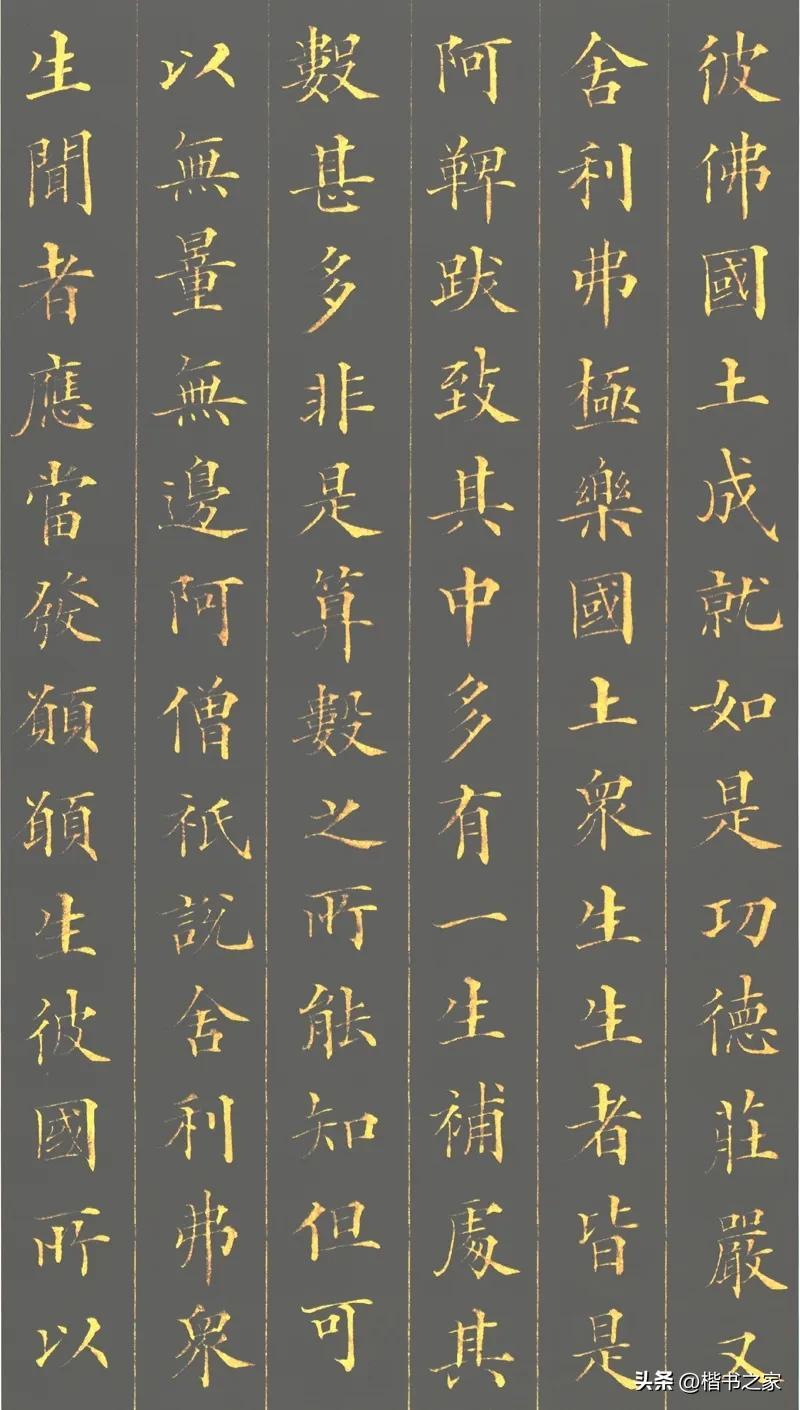 彼佛國土成就如是功德莊嚴又
舍利弗極樂國土衆生生者皆是
阿鞞跋致其中多有一生補處其
數甚多非是算數之所能知但可
以無量無邊阿僧祇說舍利弗衆
生聞者應當發願願生彼國所以
头条 @楷书之家